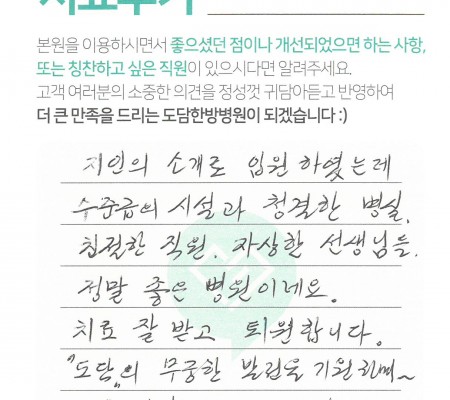 치료후기
본원을 이용하시면서 좋으셨던 점이나 개선되었으면 하는 사항,
또는 칭찬하고 싶은 직원이 있으시다면 알려주세요.
고객 여러분의 소중한 의견을 정성껏 귀담아듣고 반영하여
더 큰 만족을 드리는 도담한방병원이 되겠습니다 :)
지인의 소개로 입원하였는데
수준급의 시설과 청결한 병실,
친절한 직원, 자상한 선생님들,
정말 좋은 병원이네요.
치료 잘 받고 퇴원합니다.
"도담"의 무궁한 발전을 기원하며~